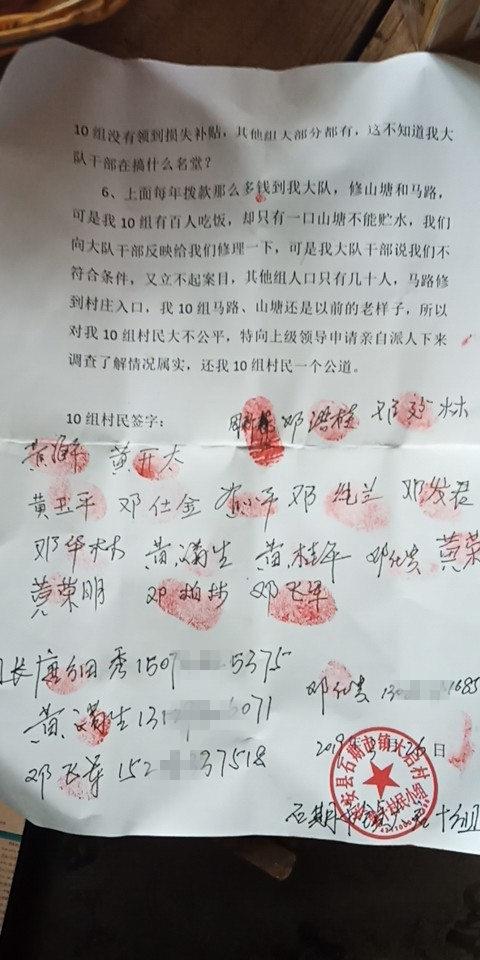 10 组没有领到损失补贴，其他组大部分都有，这不知道我大
队干部在搞什么名堂？
6、上面每年拨款那么多钱到我大队，修山塘和马路，
可是我 10 组有百人吃饭，却只有一口山塘不能贮水，我们
向大队干部反映给我们修理一下，可是我大队干部说我们不
符合条件，又立不起案目，其他组人口只有几十人，马路修
到村庄入口，我 10 组马路、山塘还是以前的老样子，所以
对我 10 组村民大不公平，特向上级领导申请亲自派人下来
调查了解情况属实，还我 10 组村民一个公道。
10 组村民签字：
邓 林
黄 黄开大
黄卫平 邓仕金 平 邓纯兰 邓发君
邓华林 黄满生 黄桂年 邓 贵 黄荣
黄荣明 邓柏 邓飞军
长唐细秀 150 5375
邓 贵 13 1685
黄满生 13 6071
2019 月26日
邓飞军 152 37518
石期市镇 十组
安县石期市镇 村 村民小组